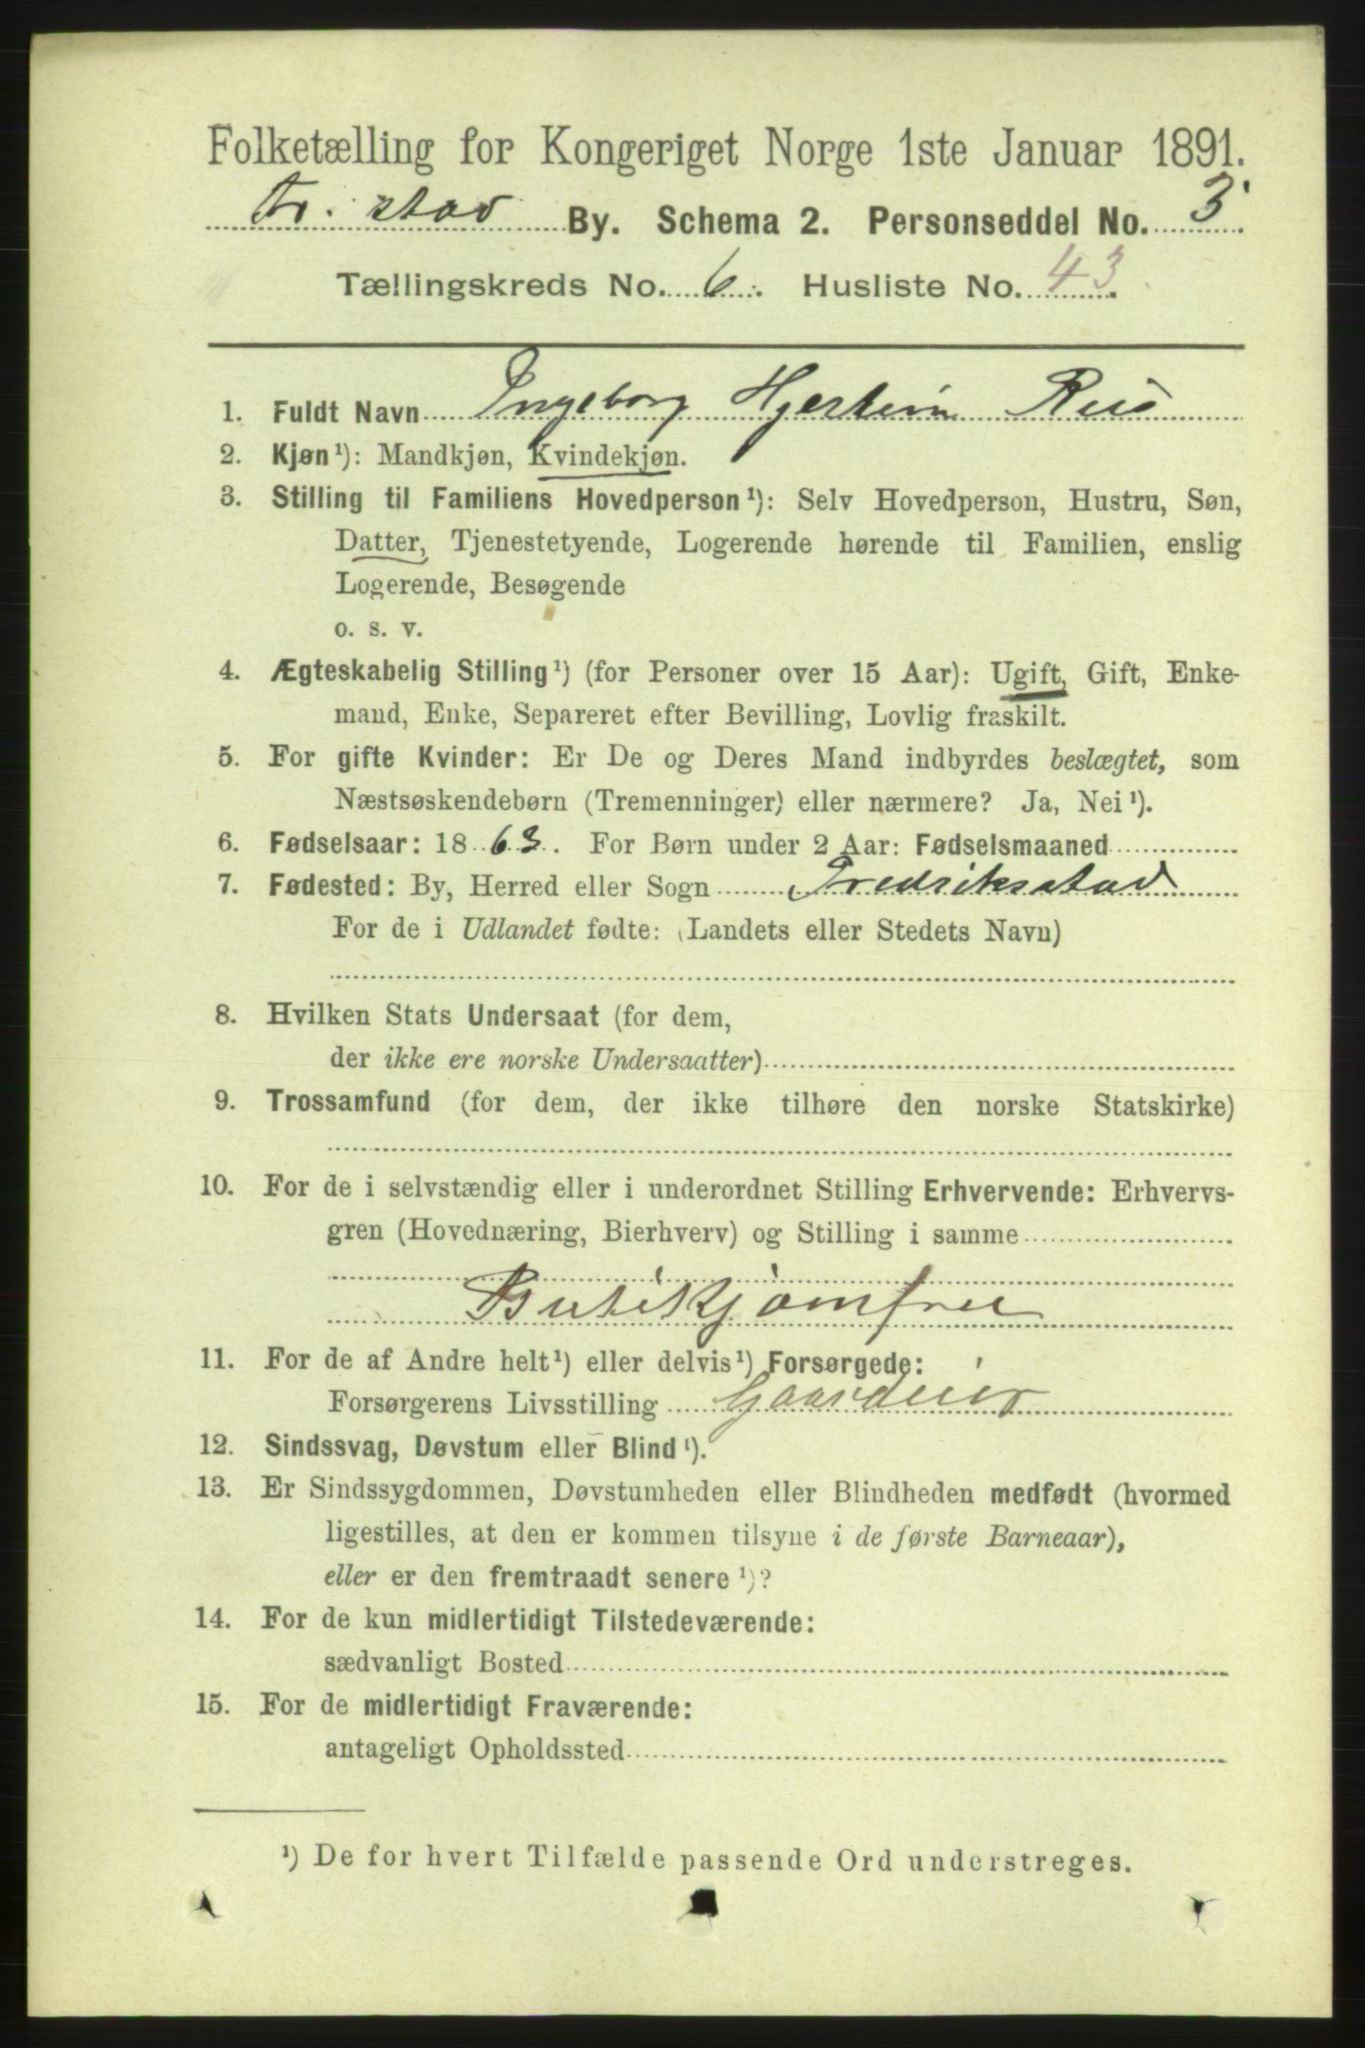 Folketælling for Kongeriget Norge 1ste Januar 1891.
Fr. stad By. Schema 2. Personseddel No. 3.
Tællingskreds No. 6. Husliste No. 43.
1. Fuldt Navn Ingeborg Riis
2. Kjøn ¹): Mandkjøn, Kvindekjøn.
3. Stilling til Familiens Hovedperson ¹): Selv Hovedperson, Hustru, Søn,
Datter, Tjenestetyende, Logerende hørende til Familien, enslig
Logerende, Besøgende
o. s. v.
4. Ægteskabelig Stilling ¹) (for Personer over 15 Aar): Ugift, Gift, Enke-
mand, Enke, Separeret efter Bevilling, Lovlig fraskilt.
5. For gifte Kvinder: Er De og Deres Mand indbyrdes beslægtet, som
Næstsøskendebørn (Tremenninger) eller nærmere? Ja, Nei ¹).
6. Fødselsaar: 1863. For Børn under 2 Aar: Fødselsmaaned
7. Fødested: By, Herred eller Sogn Fredriksstad
For de i Udlandet fødte: (Landets eller Stedets Navn)
8. Hvilken Stats Undersaat (for dem,
der ikke ere norske Undersaatter)
9. Trossamfund (for dem, der ikke tilhøre den norske Statskirke)
10. For de i selvstændig eller i underordnet Stilling Erhvervende: Erhvervs-
gren (Hovednæring, Bierhverv) og Stilling i samme
Butikjomfru
11. For de af Andre helt ¹) eller delvis ¹) Forsørgede:
Forsørgerens Livsstilling Gaardeier
12. Sindssvag, Døvstum eller Blind ¹).
13. Er Sindssygdommen, Døvstumheden eller Blindheden medfødt (hvormed
ligestilles, at den er kommen tilsyne i de første Barneaar),
eller er den fremtraadt senere ¹)?
14. For de kun midlertidigt Tilstedeværende:
sædvanligt Bosted
15. For de midlertidigt Fraværende:
antageligt Opholdssted
¹) De for hvert Tilfælde passende Ord understreges.